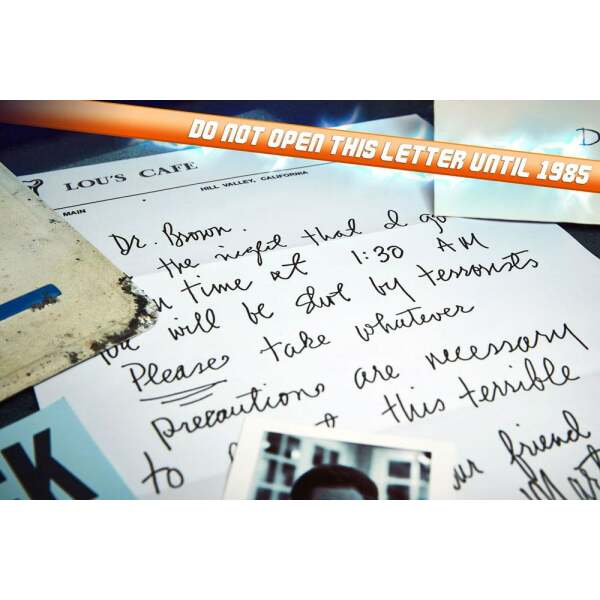 DO NOT OPEN THIS LETTER UNTIL 1985
D
LOU'S CAFE
HILL VALLEY, CALIFORNIA
MAIN
Dr. Brown.
the night that I go
n time at 1:30 AM
you will be shot by terrorists
Please take whatever
precautions are necessary
to this terrible
ur friend
Mart
K